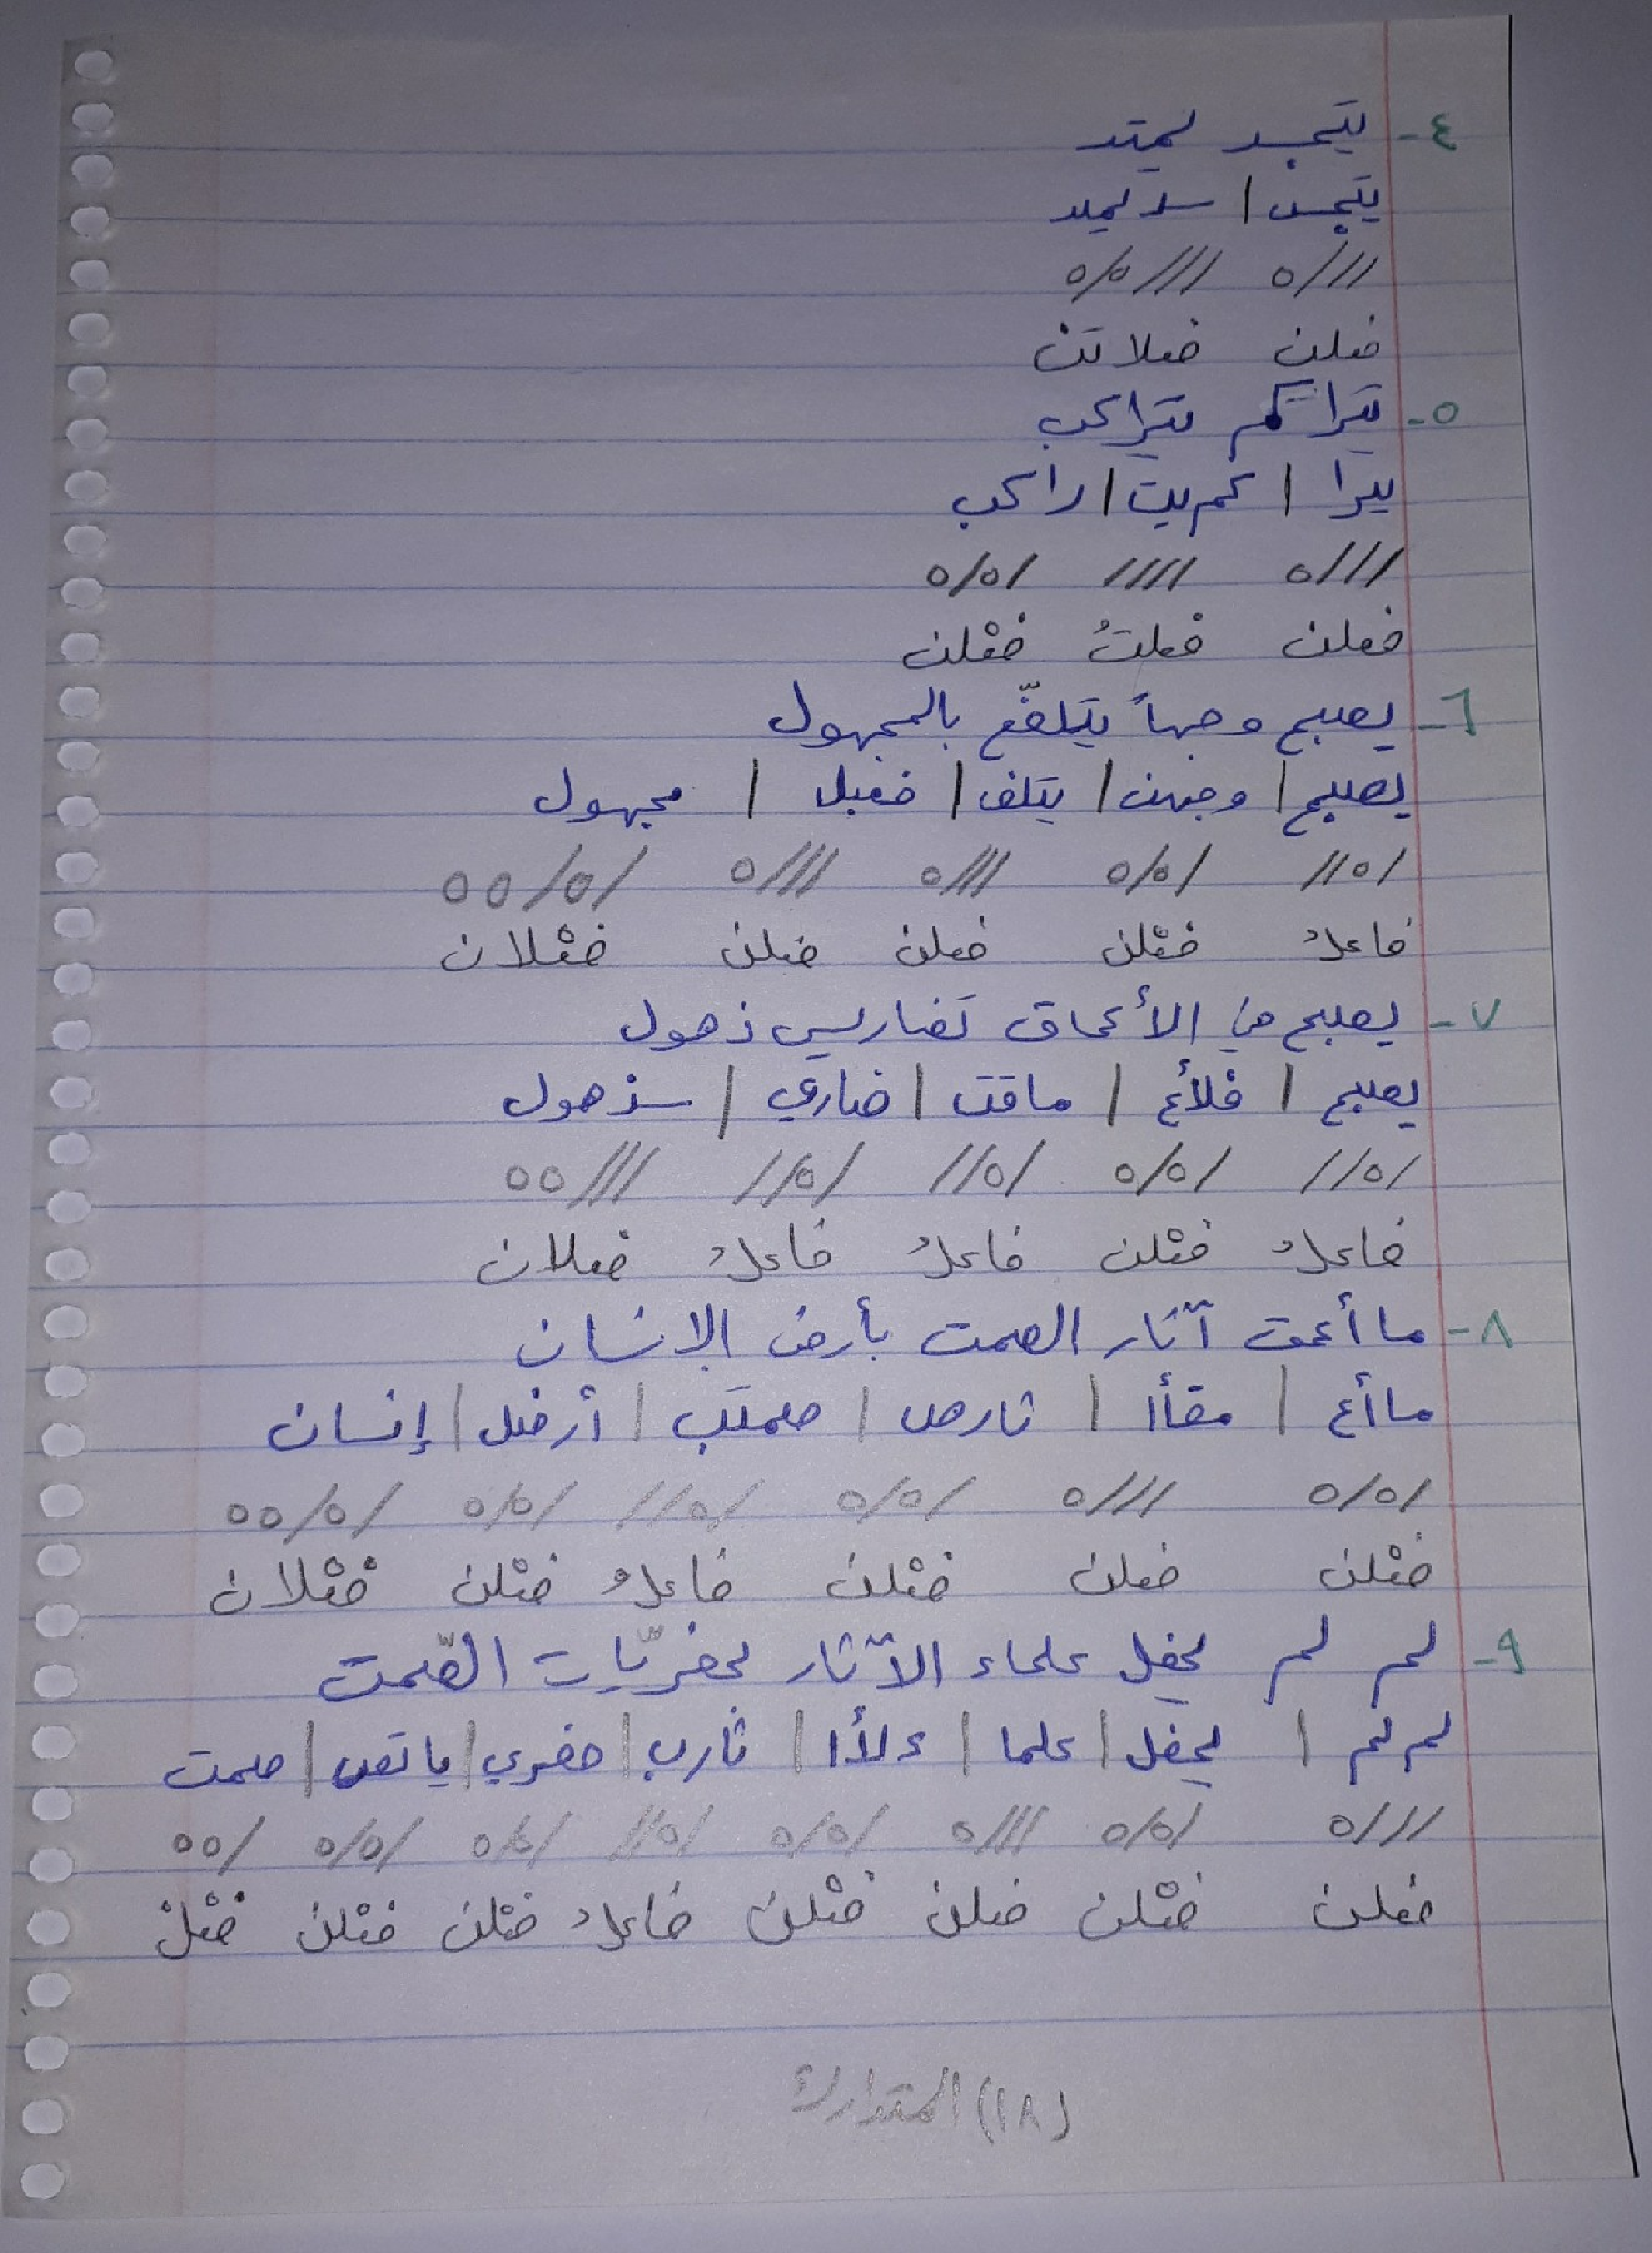 ٤- يتجسد يمتد
يتجسـ | سد يمتد
///ه ///ه/ه
فعلن فعلاتن
٥- يتراكم يتراكب
يترا | كم يت | راكب
///ه //// /ه/ه
فعلن فعلتُ فعْلن
٦- يصبح وجهاً يتلفّع بالمجهول
يصبح | وجهن | يتلف | فعبل | مجهول
/ه// /ه/ه ///ه ///ه /ه/ه ه
فاعلُ فعْلن فعلن فعلن فعْلان
٧- يصبح في الأعماق تضاريس ذهول
يصبح | فلأع | ماقت | ضاري | سذهول
/ه// /ه/ه /ه// /ه// ///ه ه
فاعلُ فعْلن فاعلُ فاعلُ فعلان
٨- ما أعمق آثار الصمت بأرض الإنسان
ما أع | مقأا | ثارص | صمتب | أرضل | إنسان
/ه/ه ///ه /ه/ه /ه// /ه/ه /ه/ه ه
فعْلن فعلن فعْلن فاعلُ فعْلن فعْلان
٩- لم لم يحفل علماء الآثار بحفريّات الصّمت
لم لم | يحفل | علما | ءلأا | ثارب | حفري | ياتص | صمت
///ه /ه/ه ///ه /ه/ه /ه// /ه/ه /ه/ه /ه ه
فعلن فعْلن فعلن فعْلن فاعلُ فعْلن فعْلن فعْلْ
(١٨) المتدارك